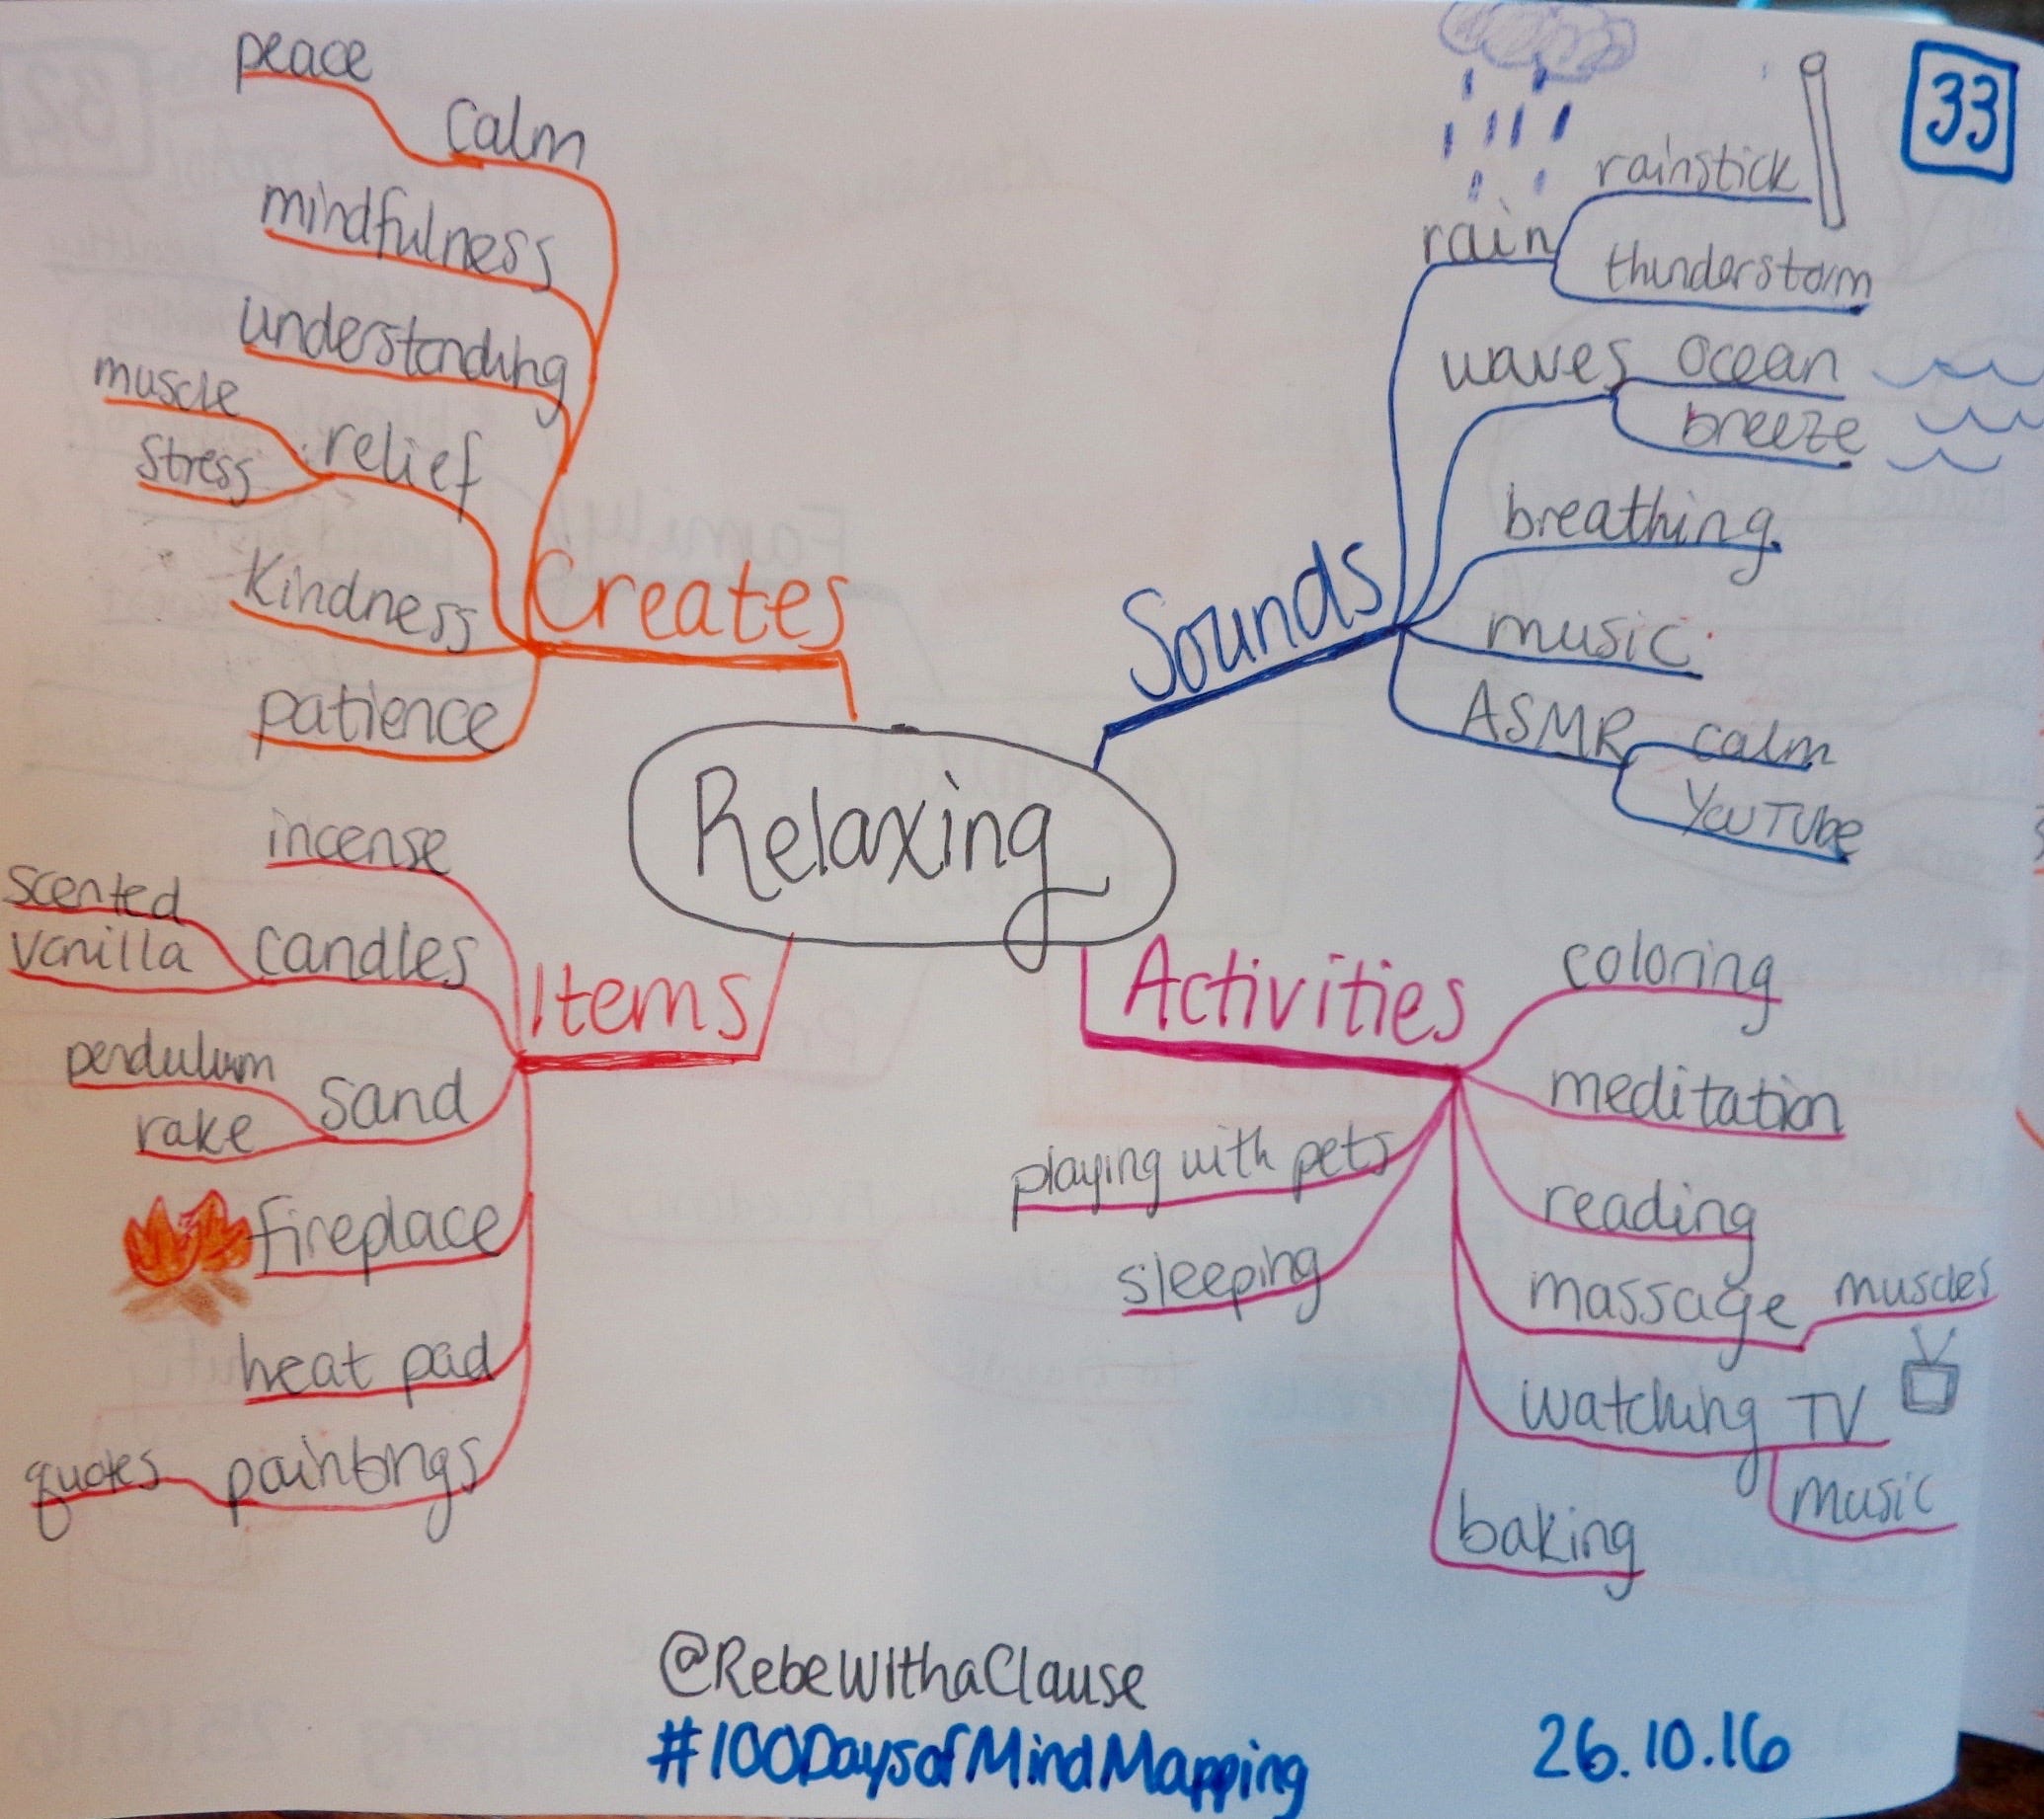 33
Relaxing
Creates
calm
peace
mindfulness
understanding
relief
muscle
stress
Kindness
patience
Sounds
rain
rainstick
thunderstorm
waves
ocean
breeze
breathing
music
ASMR
calm
YouTube
Items
incense
candles
scented
vanilla
sand
pendulum
rake
fireplace
heat pad
paintings
quotes
Activities
coloring
meditation
reading
massage
muscles
watching TV
music
baking
playing with pets
sleeping
@RebeWithaClause
#100DaysofMindMapping
26.10.16